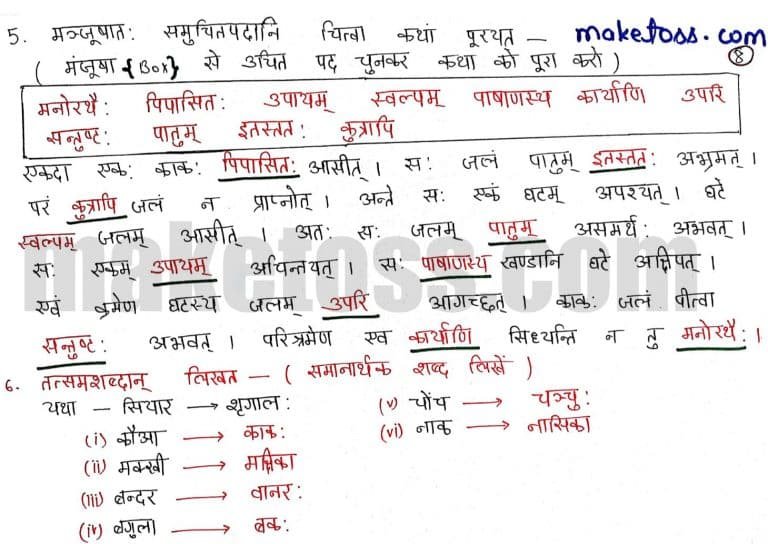 5. मञ्जूषात: समुचितपदानि चित्वा कथां पूरयत — maketoss.com
( मंजूषा {Box} से उचित पद चुनकर कथा को पूरा करो ) 8
मनोरथै: पिपासित: उपायम् स्वल्पम् पाषाणस्य कार्याणि उपरि
सन्तुष्ट: पातुम् इतस्तत: कुत्रापि
एकदा एक: काक: पिपासित: आसीत् । स: जलं पातुम् इतस्तत: अभ्रमत् ।
परं कुत्रापि जलं न प्राप्नोत् । अन्ते स: एकं घटम् अपश्यत् । घटे
स्वल्पम् जलम् आसीत् । अत: स: जलम् पातुम् असमर्थ: अभवत् ।
स: एकम् उपायम् अचिन्तयत् । स: पाषाणस्य खण्डानि घटे अक्षिपत् ।
एवं क्रमेण घटस्य जलम् उपरि आगच्छत् । काक: जलं पीत्वा
सन्तुष्ट: अभवत् । परिश्रमेण एव कार्याणि सिध्यन्ति न तु मनोरथै: ।
6. तत्समशब्दान् लिखत — ( समानार्थक शब्द लिखें )
यथा — सियार → शृगाल:
(i) कौआ → काक:
(ii) मक्खी → मक्षिका
(iii) बन्दर → वानर:
(iv) बगुला → बक:
(v) चोंच → चञ्चु:
(vi) नाक → नासिका
maketoss.com